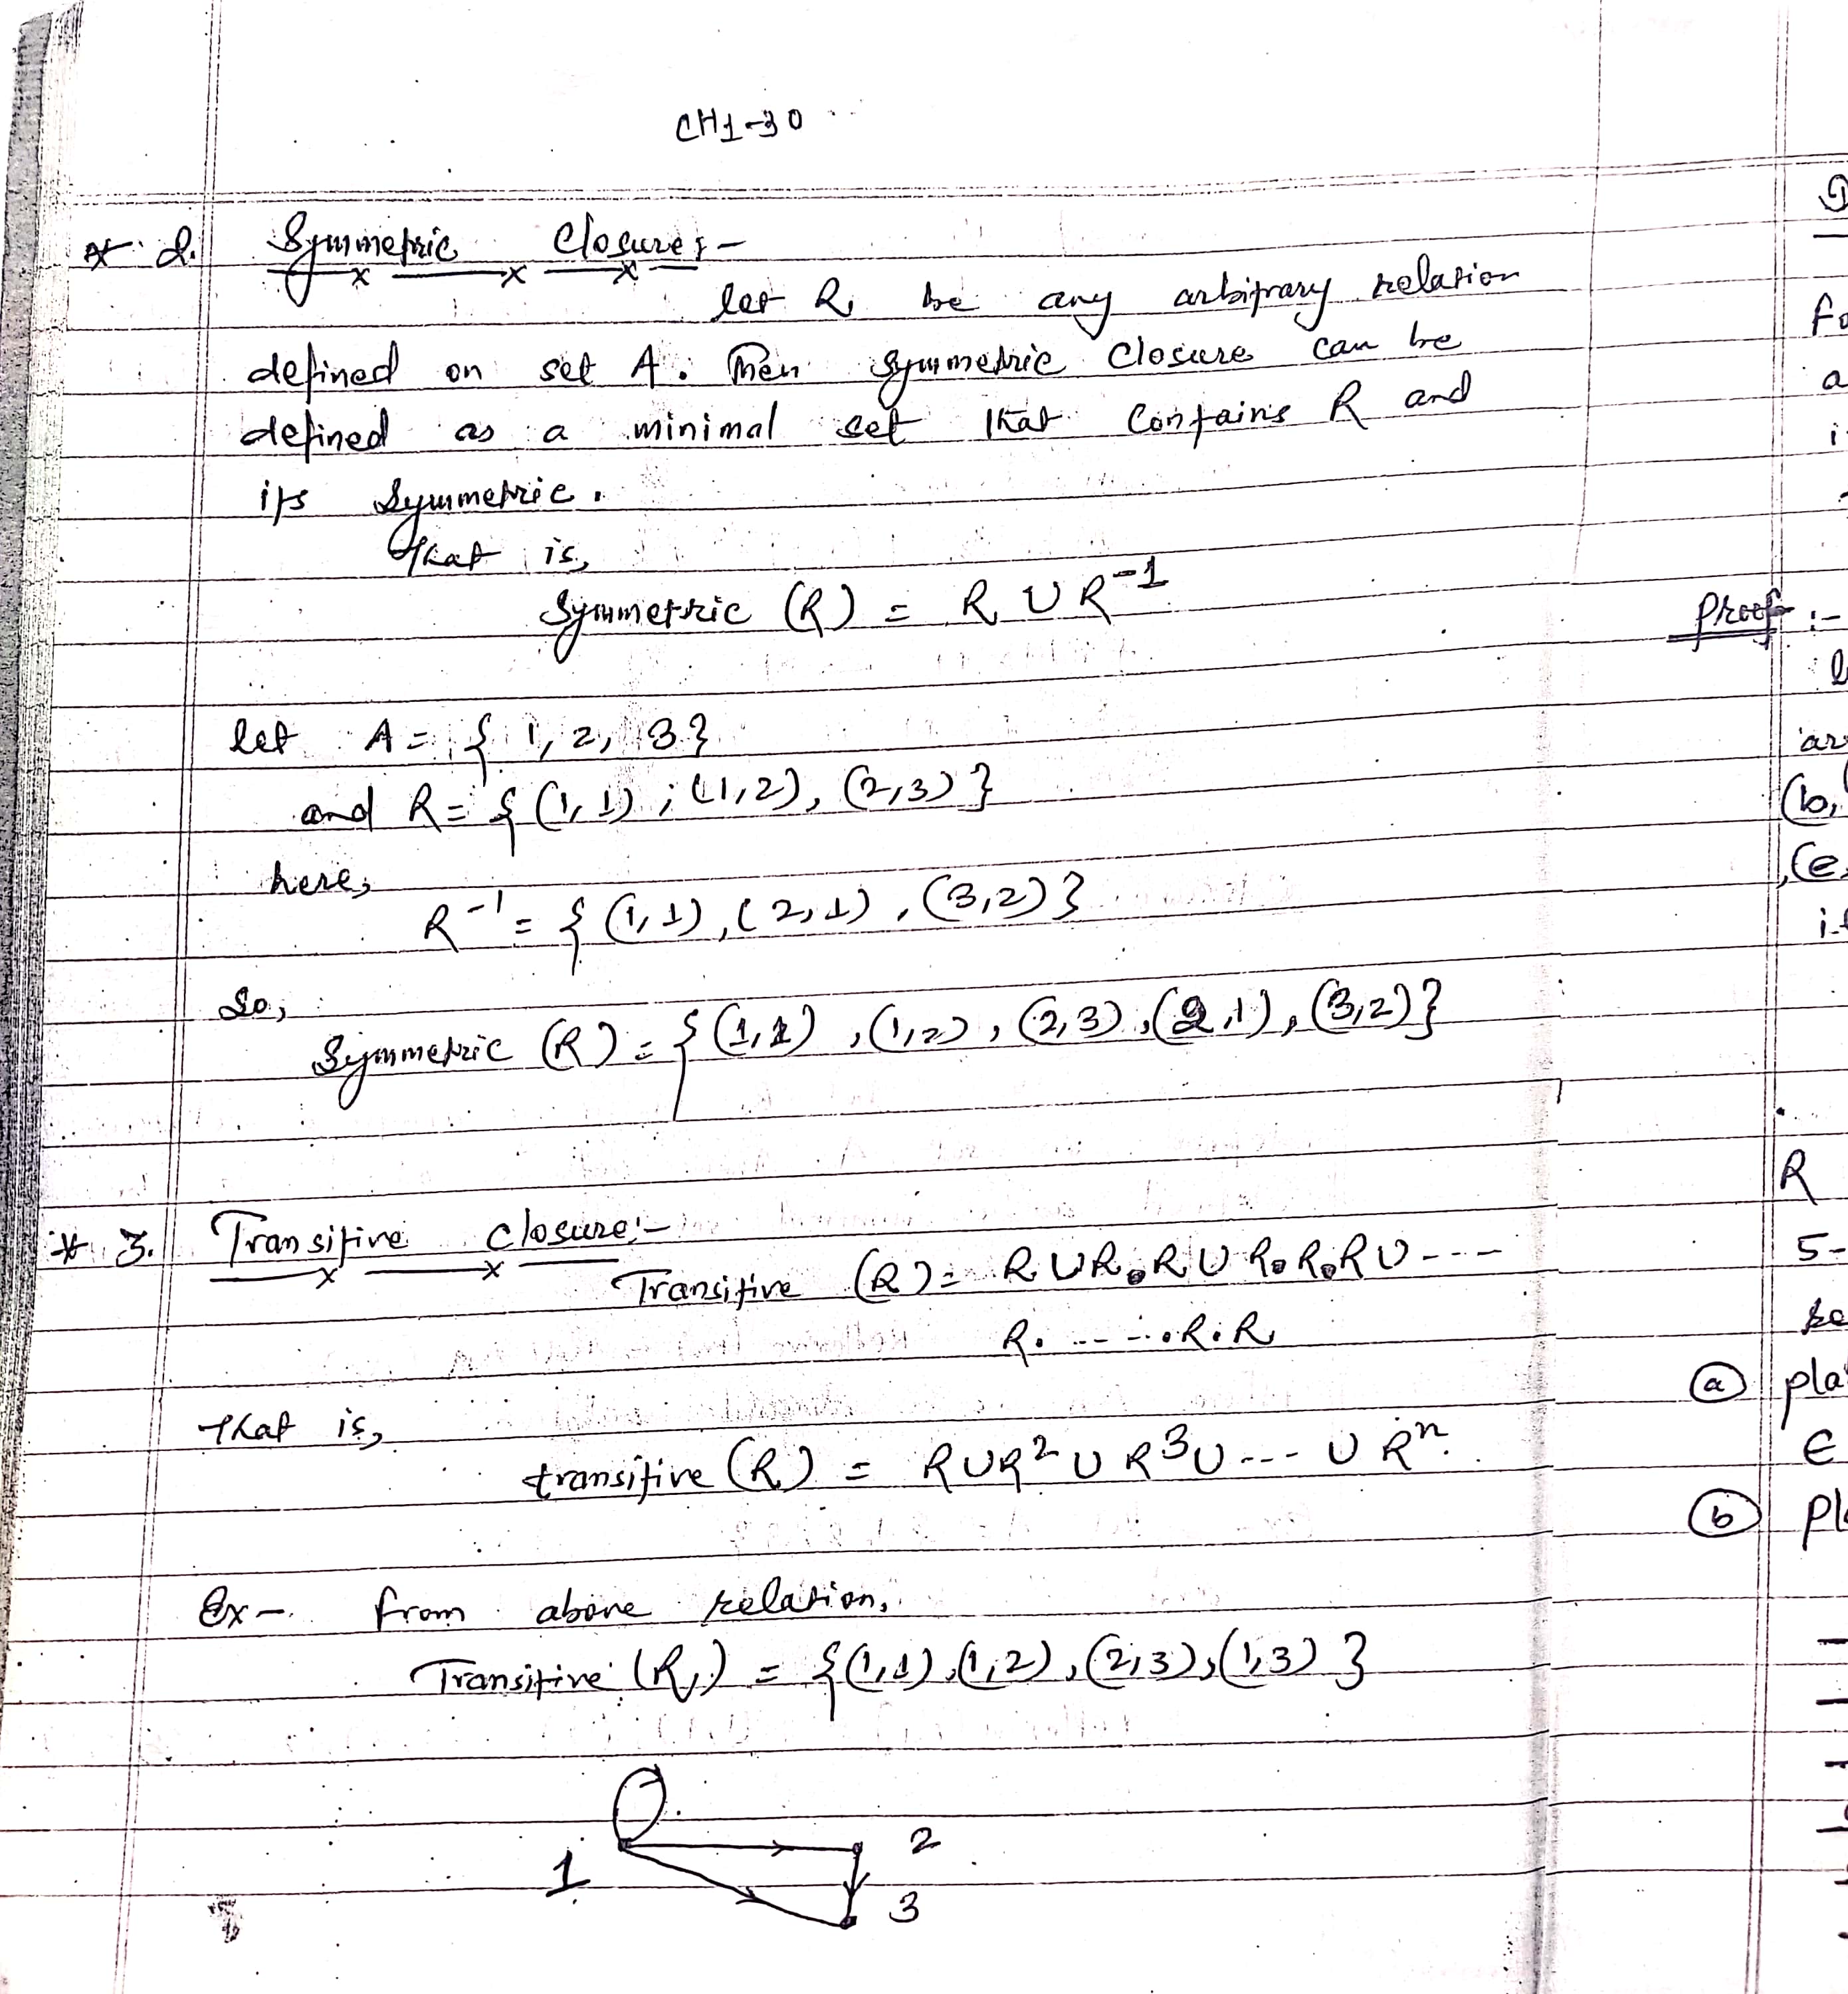 CH1-30
* 2. Symmetric Closure :-
let R be any arbitrary relation
defined on set A. Then symmetric closure can be
defined as a minimal set that contains R and
its symmetric.
That is,
Symmetric (R) = R ∪ R⁻¹
let A = { 1, 2, 3 }
and R = { (1,1) , (1,2), (2,3) }
here,
R⁻¹ = { (1,1), (2,1), (3,2) }
So,
Symmetric (R) = { (1,1) , (1,2) , (2,3) , (2,1), (3,2) }
* 3. Transitive closure :-
Transitive (R) = R ∪ R∘R ∪ R∘R∘R ∪ ---
R∘ -----∘R∘R
That is,
transitive (R) = R ∪ R² ∪ R³ ∪ --- ∪ Rⁿ.
Ex - from above relation,
Transitive (R) = { (1,1), (1,2), (2,3), (1,3) }
2
1
3
Proof :-
(b,
R
5-
(a) pla
∈
(b) pl